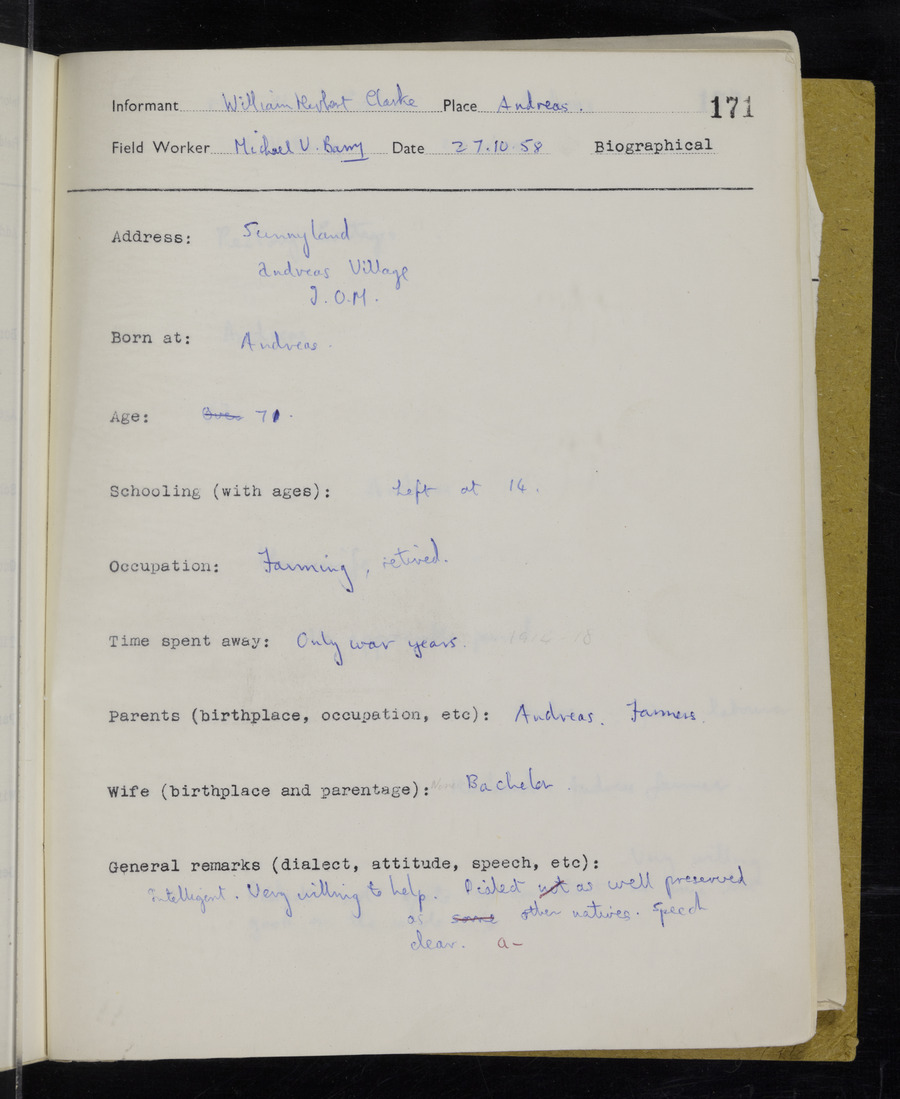 Informant William Herbert Clarke Place Andreas. 171
Field Worker Michael V. Barry Date 27.10.58 Biographical
Address: Sunnyland
Andreas Village
I.O.M.
Born at: Andreas.
Age: Over 71.
Schooling (with ages): Left at 14.
Occupation: Farming, retired.
Time spent away: Only war years. 1914-18
Parents (birthplace, occupation, etc): Andreas. Farmers.
Wife (birthplace and parentage): Bachelor.
General remarks (dialect, attitude, speech, etc):
Intelligent. Very willing to help. Dialect not as well preserved
as some other natives. Speech
clear. a-